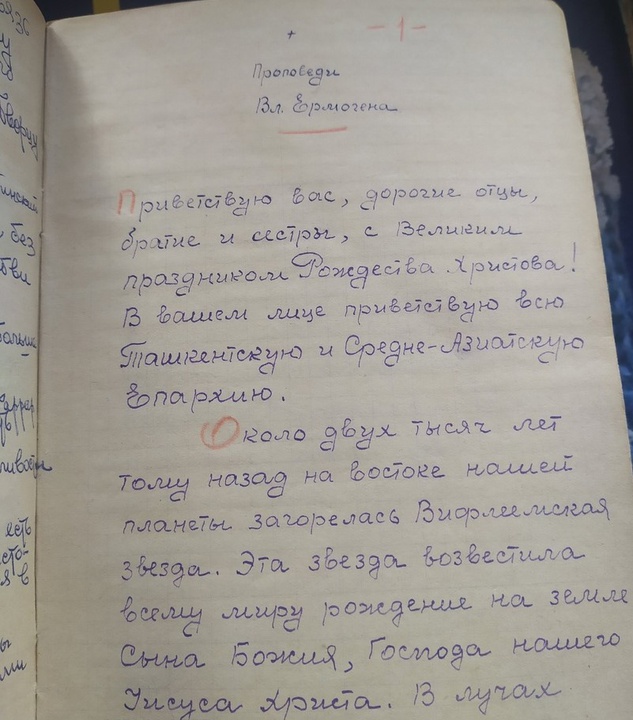 +
-1-
Проповеди
Вл. Ермогена
Приветствую вас, дорогие отцы,
братие и сестры, с Великим
праздником Рождества Христова!
В вашем лице приветствую всю
Ташкентскую и Средне-Азиатскую
Епархию.
Около двух тысяч лет
тому назад на востоке нашей
планеты загорелась Вифлеемская
звезда. Эта звезда возвестила
всему миру рождение на земле
Сына Божия, Господа нашего
Иисуса Христа. В лучах